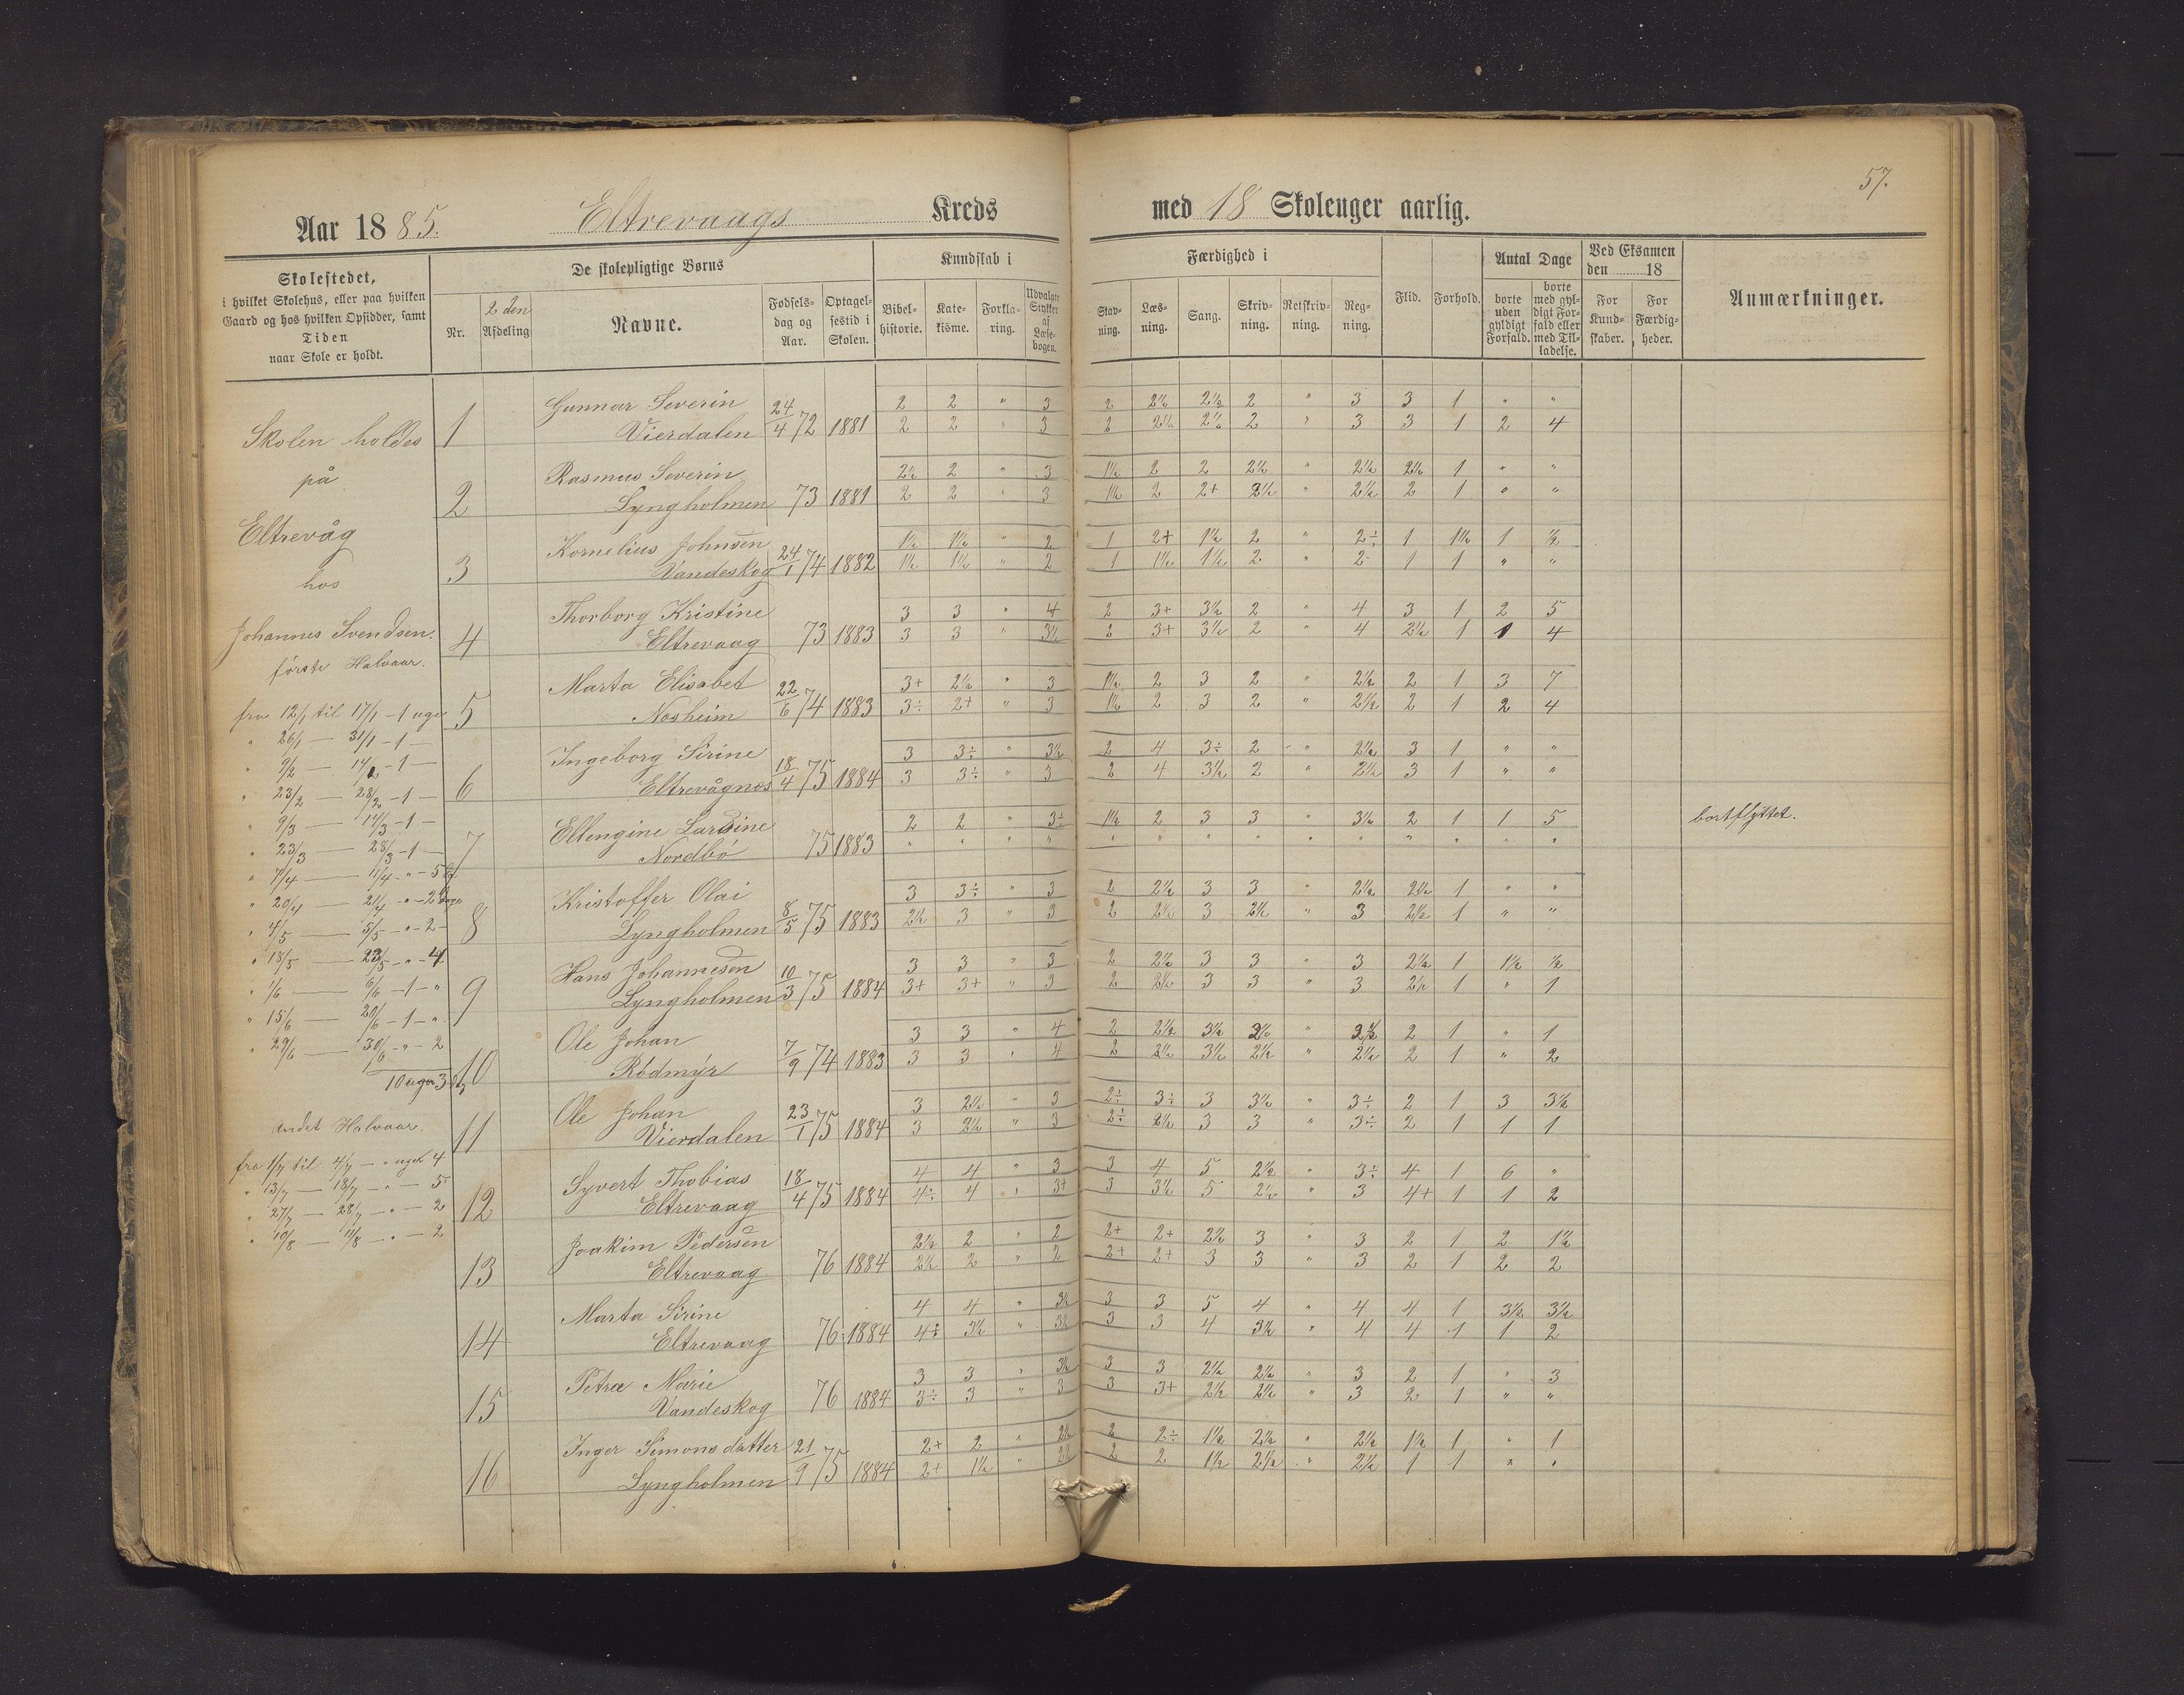 57.
Aar 1885. Eltrevaags Kreds med 18 Skoleuger aarlig.
Skolestedet,
i hvilket Skolehus, eller paa hvilken
Gaard og hos hvilken Opsidder, samt
Tiden
naar Skole er holdt.
De skolepligtige Børns
Nr.
2den
Afdeling
Navne.
Fødsels-
dag og
Aar.
Optagel-
sestid i
Skolen.
Kundskab i
Bibel-
historie.
Kate-
kisme.
Forkla-
ring.
Udvalgte
Stykker
af
Læse-
bogen.
Færdighed i
Stav-
ning.
Læs-
ning.
Sang.
Skriv-
ning.
Retskriv-
ning.
Reg-
ning.
Flid.
Forhold.
Antal Dage
borte
uden
gyldigt
Forfald.
borte
med gyl-
digt For-
fald eller
med Til-
ladelse.
Ved Eksamen
den 18
For
Kund-
skaber.
For
Færdig-
heder.
Anmærkninger.
Skolen holdes
på
Eltrevåg
hos
Johannes Svendsen.
første Halvaar.
fra 12/1 til 17/1 - 1 uge
" 26/1 — 31/1 - 1 —
" 9/2 — 14/2 - 1 —
" 23/2 — 28/2 - 1 —
" 9/3 — 14/3 - 1 —
" 23/3 — 28/3 - 1 —
" 7/4 — 11/4 - " - 5
" 20/4 — 21/4 - " - 2
" 4/5 — 5/5 - " - 2 -
" 18/5 — 23/5 - " - 4
" 1/6 — 6/6 - 1 - "
" 15/6 — 20/6 - 1 - "
" 29/6 — 30/6 - " - 2
10 uger 3
andet Halvaar.
fra 1/7 til 4/7 — " uger 4
" 13/7 — 18/7 — " — 5
" 27/7 — 28/7 — " — 2
" 10/8 — 11/8 — " — 2
1 Gunnar Severin 24/4 72 1881 2 2 " 3 2 2½ 2½ 2 " 3 3 1 " "
Vierdalen 2 2 " 3 2 2½ 2½ 2 " 3 3 1 2 4
2 Rasmus Severin 73 1881 2½ 2 " 3 1½ 2 2 2½ " 2½ 2½ 1 " "
Lyngholmen 2 2 " 3 1½ 2 2+ 2½ " 2½ 2 1 " "
3 Kornelius Johnsen 24/1 74 1882 1½ 1½ " 2 1 2+ 1½ 2 " 2÷ 1 1½ 1 ½
Vandeskog 1½ 1½ " 2 1 1½ 1½ 2 " 2 1 1 " "
4 Thorborg Kristine 73 1883 3 3 " 4 2 3+ 3½ 2 " 4 3 1 2 5
Eltrevaag 3 3 " 3½ 2 3+ 3½ 2 " 4 2½ 1 1 4
5 Marta Elisabet 22/6 74 1883 3+ 2½ " 3 1½ 2 3 2 " 2½ 2 1 3 7
Nosheim 3÷ 2+ " 3 1½ 2 3 2 " 2½ 2 1 2 4
6 Ingeborg Sirine 18/4 75 1884 3 3÷ " 3½ 2 4 3÷ 2 " 2½ 3 1 " "
Eltrevågnæs 3 3÷ " 3 2 4 3½ 2 " 2½ 3 1 " "
7 Ellengine Lardine 75 1883 2 2 " 3÷ 1½ 2 3 3 " 3½ 2 1 1 5 bortflyttet.
Nordbø " " " " " " " " " " " " " "
8 Kristoffer Olai 8/5 75 1883 3 3÷ " 3 2 2½ 3 3 " 2½ 2½ 1 " "
Lyngholmen 2½ 3 " 3 2 2½ 3 2½ " 3 2½ 1 " "
9 Hans Johannesen 10/3 75 1884 3 3 " 3 2 2½ 3 3 " 3 2½ 1 1½ ½
Lyngholmen 3+ 3+ " 3 2 2½ 3 3 " 3 2½ 1 " 1
10 Ole Johan 7/9 74 1883 3 3 " 4 2 2½ 3½ 3½ " 3½ 2 1 " 1
Rødmyr 3 3 " 4 2 2½ 3½ 2½ " 2½ 2 1 " 2
11 Ole Johan 23/1 75 1884 3 2½ " 3 2÷ 3÷ 3 3½ " 3÷ 2 1 3 3½
Vierdalen 3 2½ " 3 2÷ 2½ 3 3 " 3÷ 2 1 1 1
12 Syvert Thobias 18/4 75 1884 4 4 " 3 3 4 5 2½ " 3÷ 4 1 6 "
Eltrevaag 4÷ 4 " 3+ 3 3½ 5 2½ " 3 4+ 1 1 2
13 Joakim Pedersen 76 1884 2½ 2 " 2 2+ 2+ 2½ 3 " 3 2 1 2 1½
Eltrevaag 2½ 2 " 2 2+ 2+ 3 3 " 3 2 1 2 2
14 Marta Sirine 76 1884 4 4 " 3½ 3 3 5 4 " 4 4 1 3½ 3½
Eltrevaag 4÷ 3½ " 3½ 3 3 4 3½ " 4 4 1 1 2
15 Petra Marie 76 1884 3 3 " 3½ 3 3 2½ 2½ " 3 2 1 " 3
Vandeskog 3÷ 3 " 3 3 3+ 2½ 2½ " 3 2 1 " "
16 Inger Simonsdatter 21/9 75 1884 2+ 2 " 2½ 2 2÷ 1½ 2½ " 2½ 1½ 1 " 1
Lyngholmen 2+ 1½ " 2½ 2 2 1½ 2½ " 2½ 1 1 " "